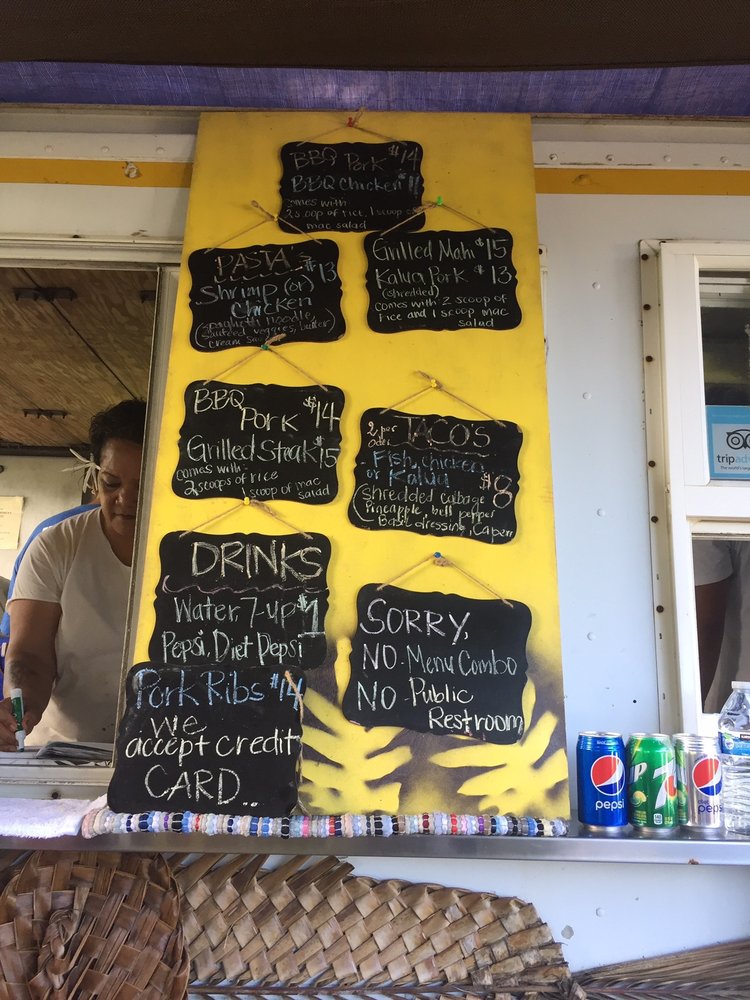 BBQ Pork $14
BBQ Chicken $11
comes with
2 scoop of rice, 1 scoop of
mac salad
PASTA'S
$13
Shrimp (or)
Chicken
(spaghetti noodle,
sauteed veggies, butter,
cream sauce)
Grilled Mahi $15
Kalua Pork $13
(shredded)
comes with 2 scoop of
rice and 1 scoop mac
salad
BBQ
Pork $14
Grilled Steak $15
comes with:
2 scoops of rice
1 scoop of mac
salad
2 per
TACO'S
Fish, chicken
or Kalua
$8
shredded cabbage
Pineapple, bell pepper
Basil dressing, Capers
DRINKS
Water, 7-up $1
Pepsi, Diet Pepsi
Pork Ribs $14
we
accept credit
CARD..
SORRY,
NO - Menu Combo
NO - Public
Restroom
tripad
pepsi
7
pepsi